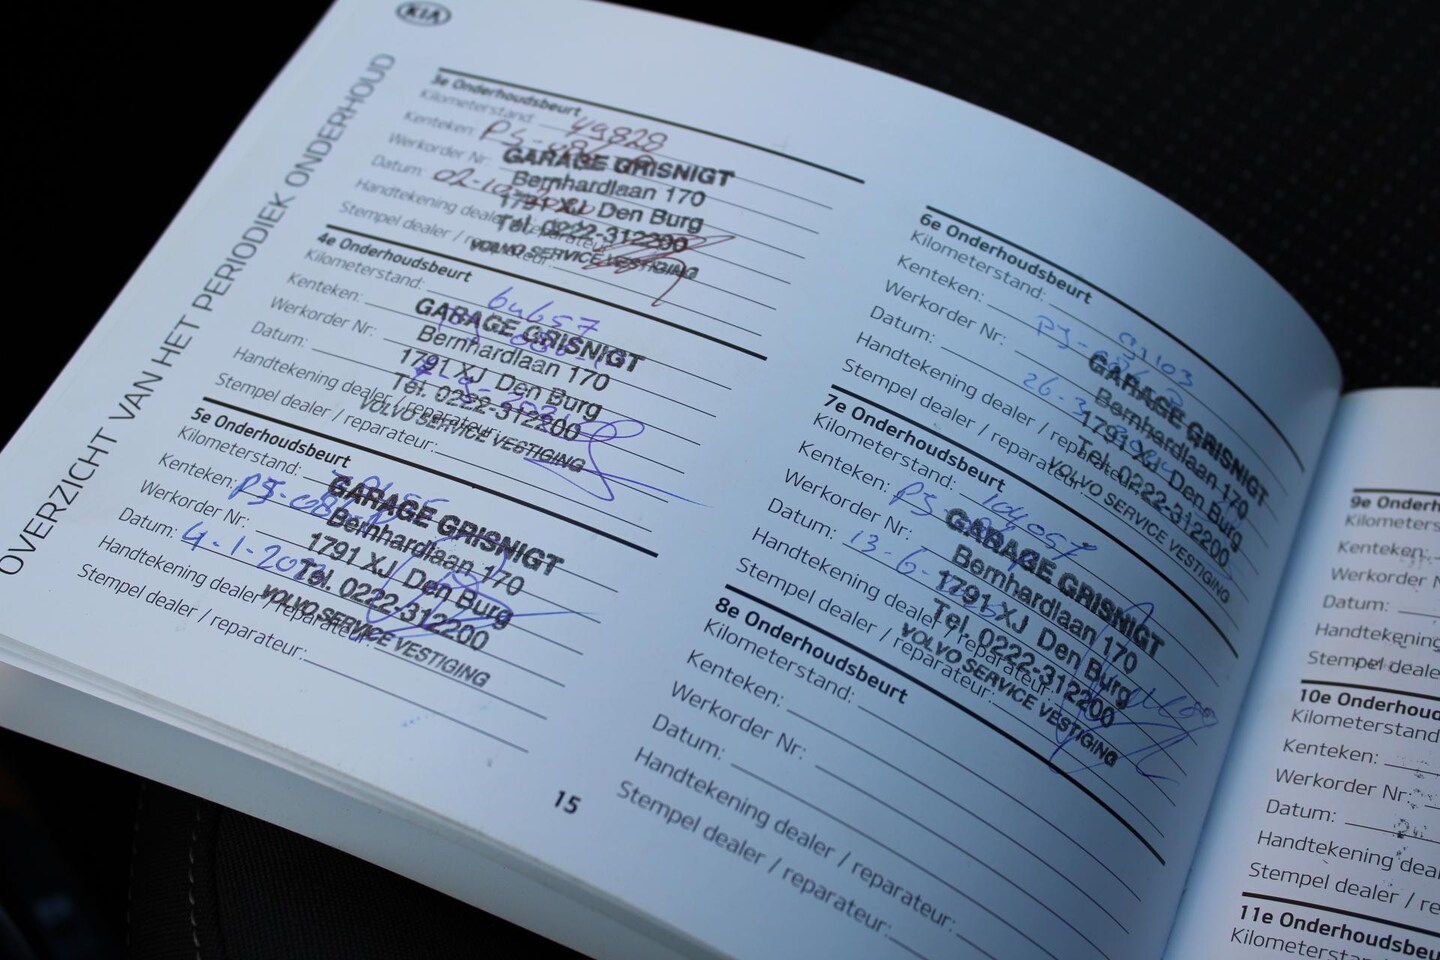 KIA
OVERZICHT VAN HET PERIODIEK ONDERHOUD
3e Onderhoudsbeurt
Kilometerstand: 49828
Kenteken:
Werkorder Nr:
Datum: 02-10-
Handtekening dealer / reparateur:
Stempel dealer / reparateur:
GARAGE GRISNIGT
Bernhardlaan 170
1791 XJ Den Burg
Tel. 0222-312200
VOLVO SERVICE VESTIGING
4e Onderhoudsbeurt
Kilometerstand: 64657
Kenteken:
Werkorder Nr:
Datum:
Handtekening dealer / reparateur:
Stempel dealer / reparateur:
GARAGE GRISNIGT
Bernhardlaan 170
1791 XJ Den Burg
Tel. 0222-312200
VOLVO SERVICE VESTIGING
5e Onderhoudsbeurt
Kilometerstand:
Kenteken:
Werkorder Nr:
Datum: 4-1-
Handtekening dealer / reparateur:
Stempel dealer / reparateur:
GARAGE GRISNIGT
Bernhardlaan 170
1791 XJ Den Burg
Tel. 0222-312200
VOLVO SERVICE VESTIGING
15
6e Onderhoudsbeurt
Kilometerstand: 93103
Kenteken:
Werkorder Nr:
Datum: 26-3
Handtekening dealer / reparateur:
Stempel dealer / reparateur:
GARAGE GRISNIGT
Bernhardlaan 170
1791 XJ Den Burg
Tel. 0222-312200
VOLVO SERVICE VESTIGING
7e Onderhoudsbeurt
Kilometerstand: 104057
Kenteken:
Werkorder Nr:
Datum: 13-6-
Handtekening dealer / reparateur:
Stempel dealer / reparateur:
GARAGE GRISNIGT
Bernhardlaan 170
1791 XJ Den Burg
Tel. 0222-312200
VOLVO SERVICE VESTIGING
8e Onderhoudsbeurt
Kilometerstand:
Kenteken:
Werkorder Nr:
Datum:
Handtekening dealer / reparateur:
Stempel dealer / reparateur:
9e Onderh
Kilometers
Kenteken:
Werkorder N
Datum:
Handtekening
Stempel deale
10e Onderhoud
Kilometerstand
Kenteken:
Werkorder Nr:
Datum:
Handtekening deal
Stempel dealer /
11e Onderhoudsbeu
Kilometerstan